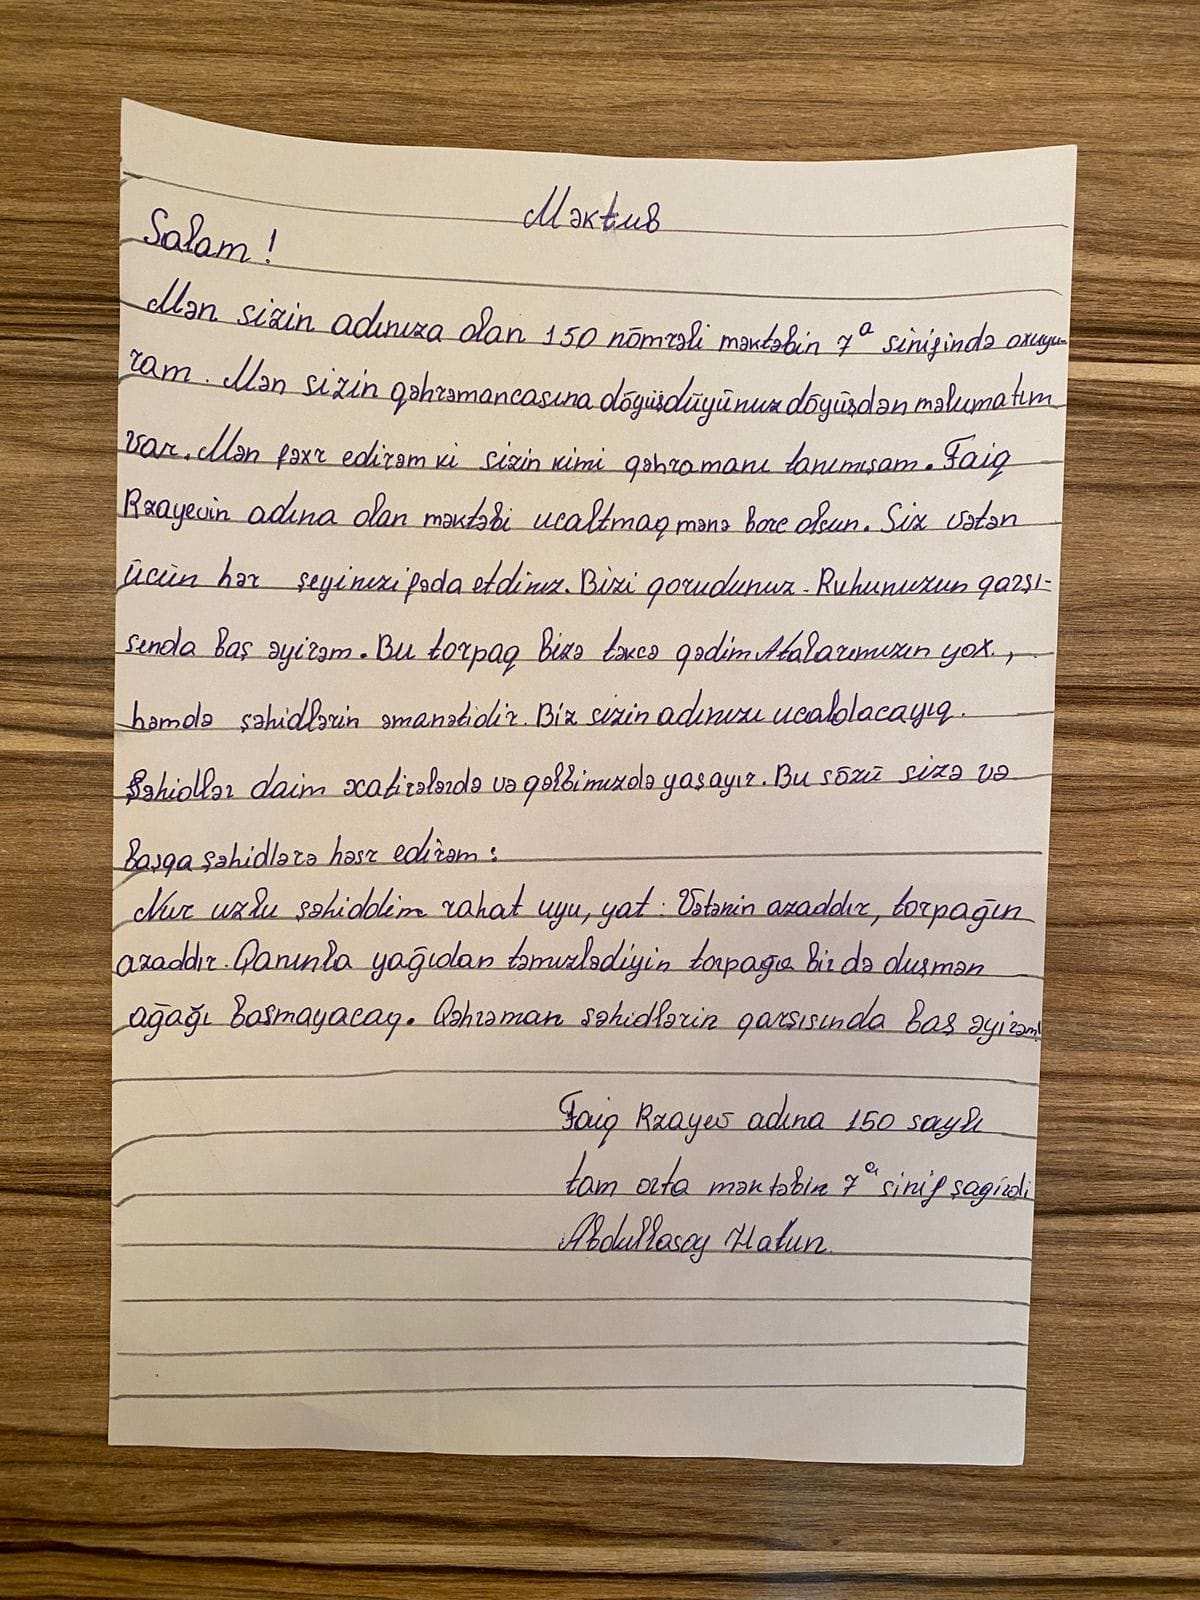 Məktub
Salam!
Mən sizin adınıza olan 150 nömrəli məktəbin 7ᵃ sinifində oxuyu-
ram. Mən sizin qəhrəmancasına döyüşdüyünüz döyüşdən məlumatım
var. Mən fəxr edirəm ki sizin kimi qəhramanı tanımışam. Faiq
Rzayevin adına olan məktəbi ucaltmaq mənə borc olsun. Siz vətən
ücün hər şeyinizi fəda etdiniz. Bizi qorudunuz. Ruhunuzun qarşı-
sında baş əyirəm. Bu torpaq bizə təkcə qədim Atalarımızın yox,
həmdə şəhidlərin əmanətidir. Biz sizin adınızı ucaldacayıq.
Şəhidlər daim xatirələrdə və qəlbimizdə yaşayır. Bu sözü sizə və
başqa şəhidlərə həsr edirəm:
Nur uzlu şəhiddim rahat uyu, yat. Vətənin azaddır, torpağın
azaddır. Qanınla yağıdan təmizlədiyin torpağa birdə duşmən
ağağı basmayacaq. Qəhrəman şəhidlərin qarşısında baş əyirəm!
Faiq Rzayev adına 150 saylı
tam orta məktəbin 7ᵃ sinif şagirdi
Abdullasoy Xatun.